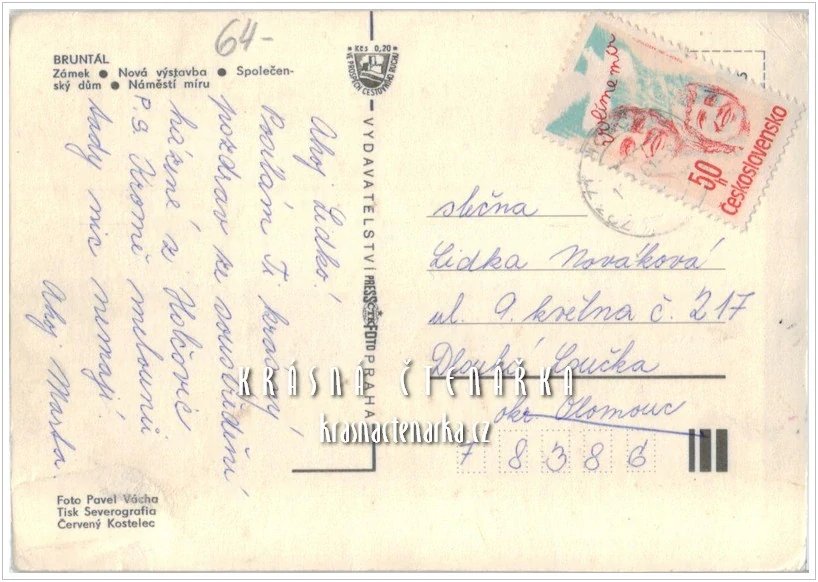 64-
BRUNTÁL
Zámek ● Nová výstavba ● Společen-
ský dům ● Náměstí míru
Kčs 0,20
VE PROSPĚCH CESTOVNÍHO RUCHU
VYDAVATELSTVÍ PRESSFOTO PRAHA
ČTK
Ahoj Lidko!
Posílám Ti krásný
pozdrav ze soustředění
házené z Holčovic
P.S. Kromě melounů
tady nic nemají.
Ahoj Marta.
volíme mír
50h
Československo
slečna
Lidka Nováková
ul. 9. května č. 217
Dlouhá Loučka
okr Olomouc
7 8 3 8 6
KRÁSNÁ ČTENÁŘKA
krasnactenarka.cz
Foto Pavel Vácha
Tisk Severografia
Červený Kostelec